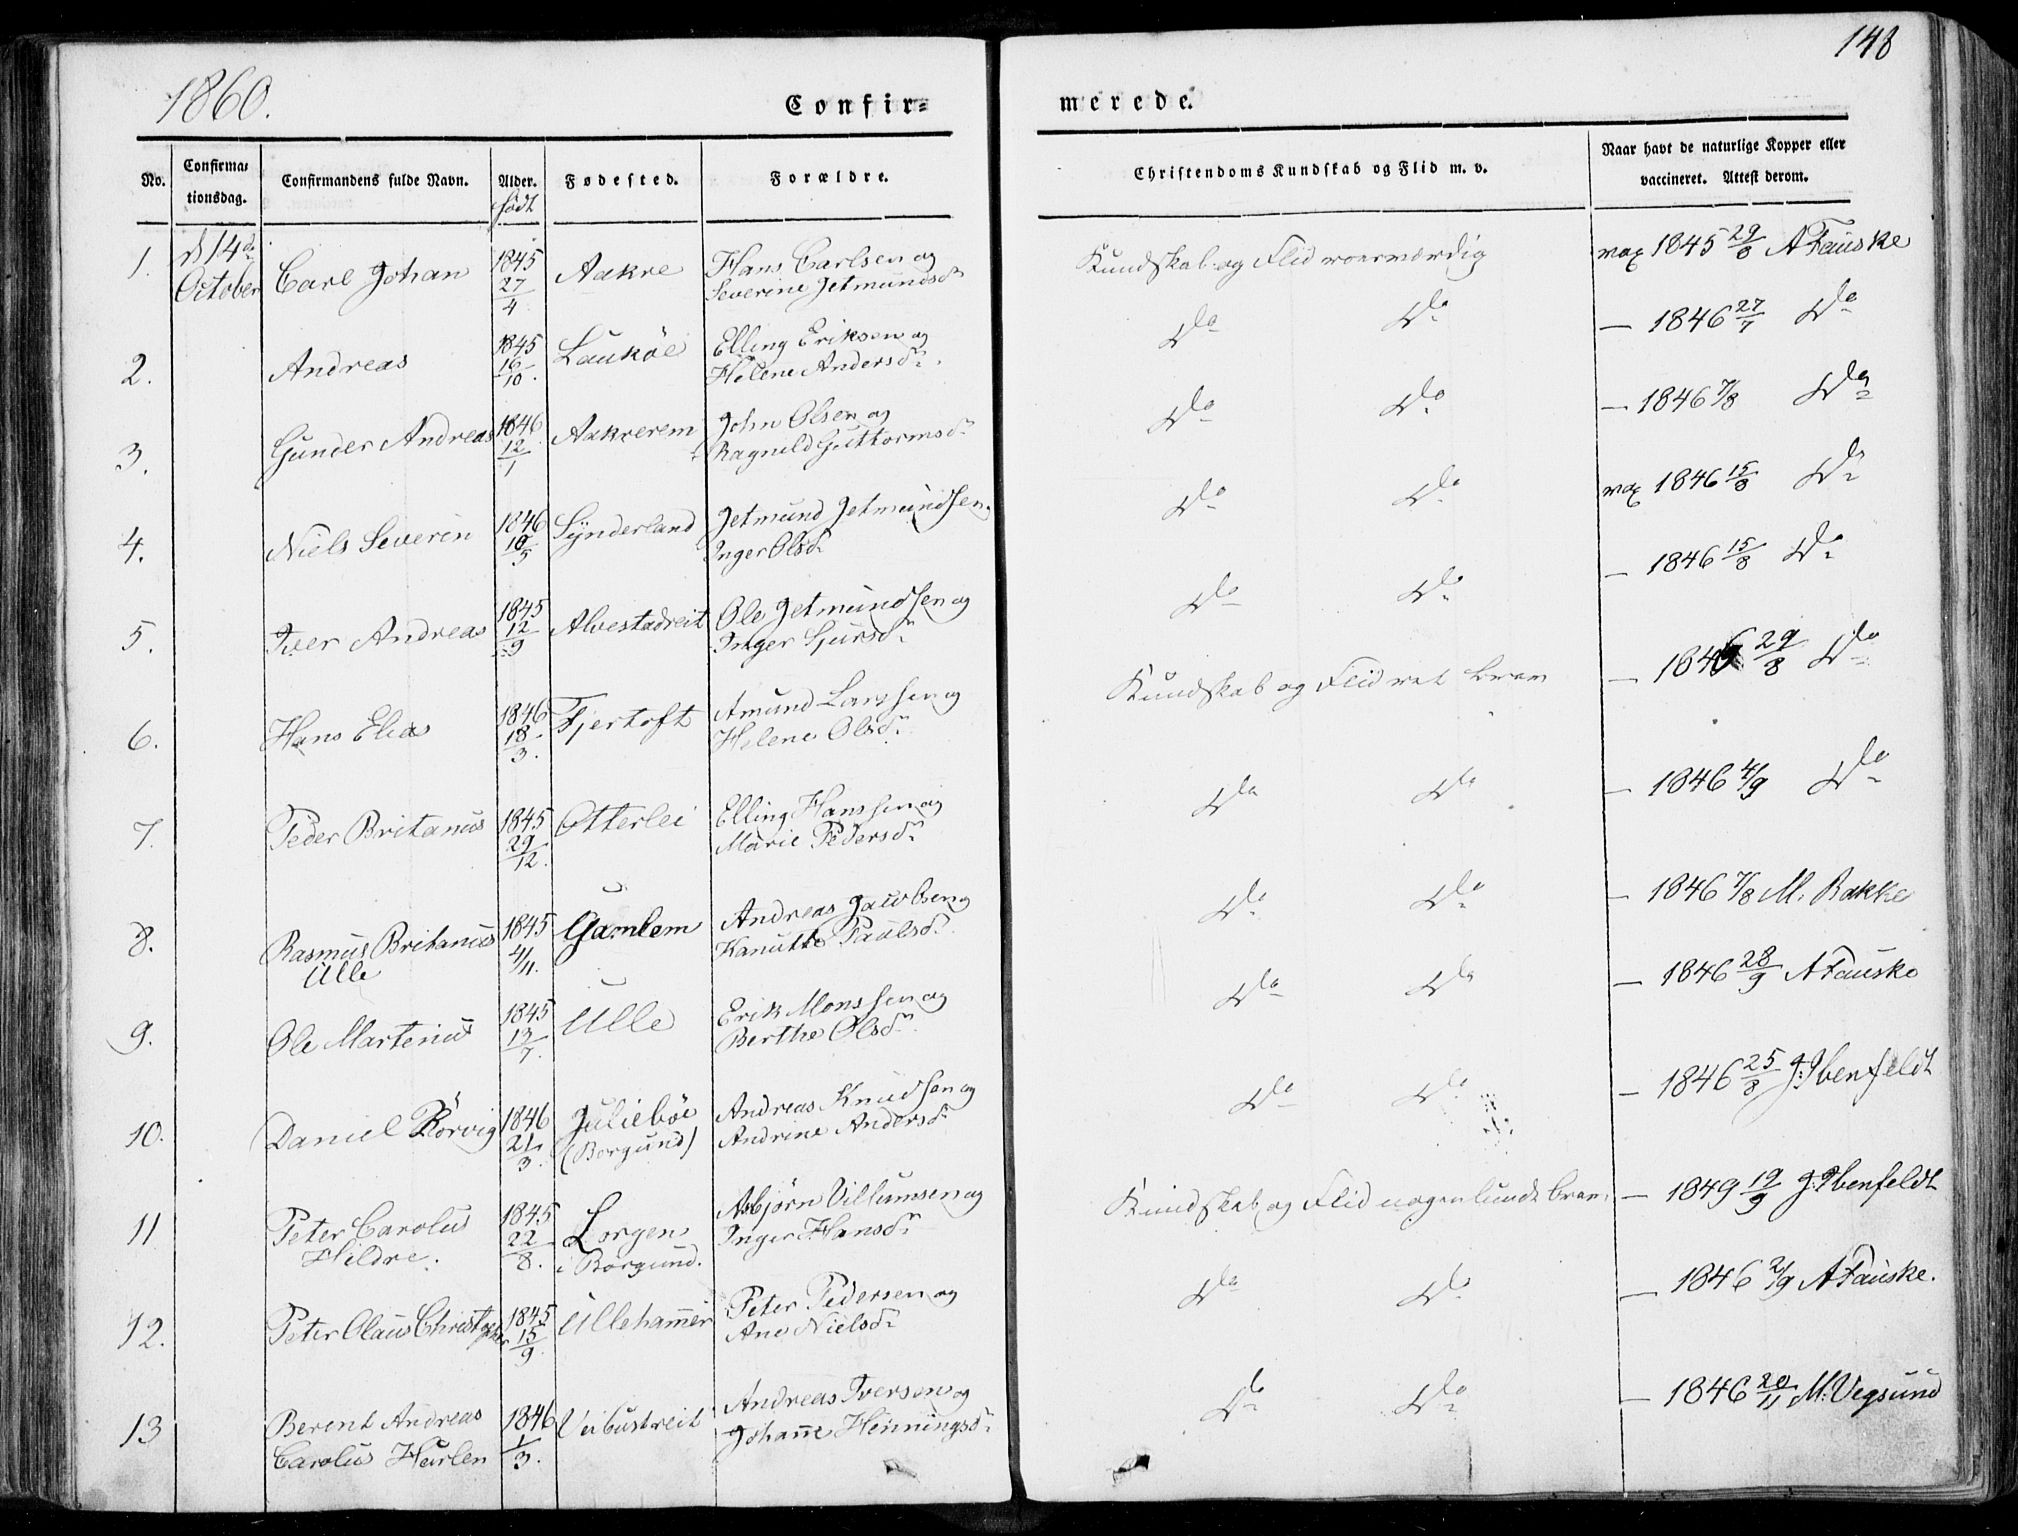 1860.
148
Confir=
merede.
No.
Confirma=
tionsdag.
Confirmandens fulde Navn.
Alder.
födt
Fødested.
Forældre.
Christendoms Kundskab og Flid m. v.
Naar havt de naturlige Kopper eller
vaccineret. Attest derom.
1. d 14de October Carl Johan 1845 27/4 Aakre Hans Carlsen og Severine Jetmundsdr Kundskab og Flid roesværdig vax 1845 29/8 A Fauske
2. Andreas 1845 16/10. Lauköe Elling Eriksen og Helene Andersdr. Do Do — 1846 27/7 Do
3. Gunder Andreas 1846 12/1 Aakrerem John Olsen og Ragnild Guttormsdr Do Do — 1846 7/8 Do
4. Niels Severin 1846 10/5 Synderland Jetmund Jetmundsen Inger Olsdr Do Do vax 1846 15/8 Do
5. Iver Andreas 1845 12/9 Alvestadreit Ole Jetmundsen og Inger Sjursdr Do Do — 1846 15/8 Do
6. Hans Elias 1846 18/3. Fjertoft Amund Larssen og Helene Olsdr Kundskab og Flid ret brav — 1846 29/8 Do
7. Peder Britanus 1845 29/12. Otterlei Elling Hanssen og Marie Pedersdr Do Do — 1846 4/9 Do
8. Rasmus Britanus Ulle 1845 4/11. Gamlem Andreas Jacobsen og Kanutte Paulsdr Do Do — 1846 7/8 M. Bakke
9. Ole Martinus 1845 13/7. Ulle Erik Monssen og Berthe Olsdr Do Do — 1846 28/9 A Fauske
10. Daniel Rörvig 1846 21/3. Julieböe (Borgund) Andreas Knudsen og Andrine Andersdr Do Do — 1846 25/8 J: Ibenfeldt
11 Peter Carolus Hildre. 1845 22/8. Lorgen i Borgund. Asbjörn Villumsen og Inger Hansdr Kundskab og Flid nogenlunde brav — 1849 19/9 J. Ibenfeldt
12. Peter Olaus Christopher 1845 15/9. Ullehamer Peter Pedersen og Ane Nielsdr Do Do — 1846 2/9 A Fauske.
13 Berent Andreas Carolus 1846 1/3. Veibustreit Andreas Iversen og Johanne Henningsdr Do Do — 1846 20/11 M. Vegsund